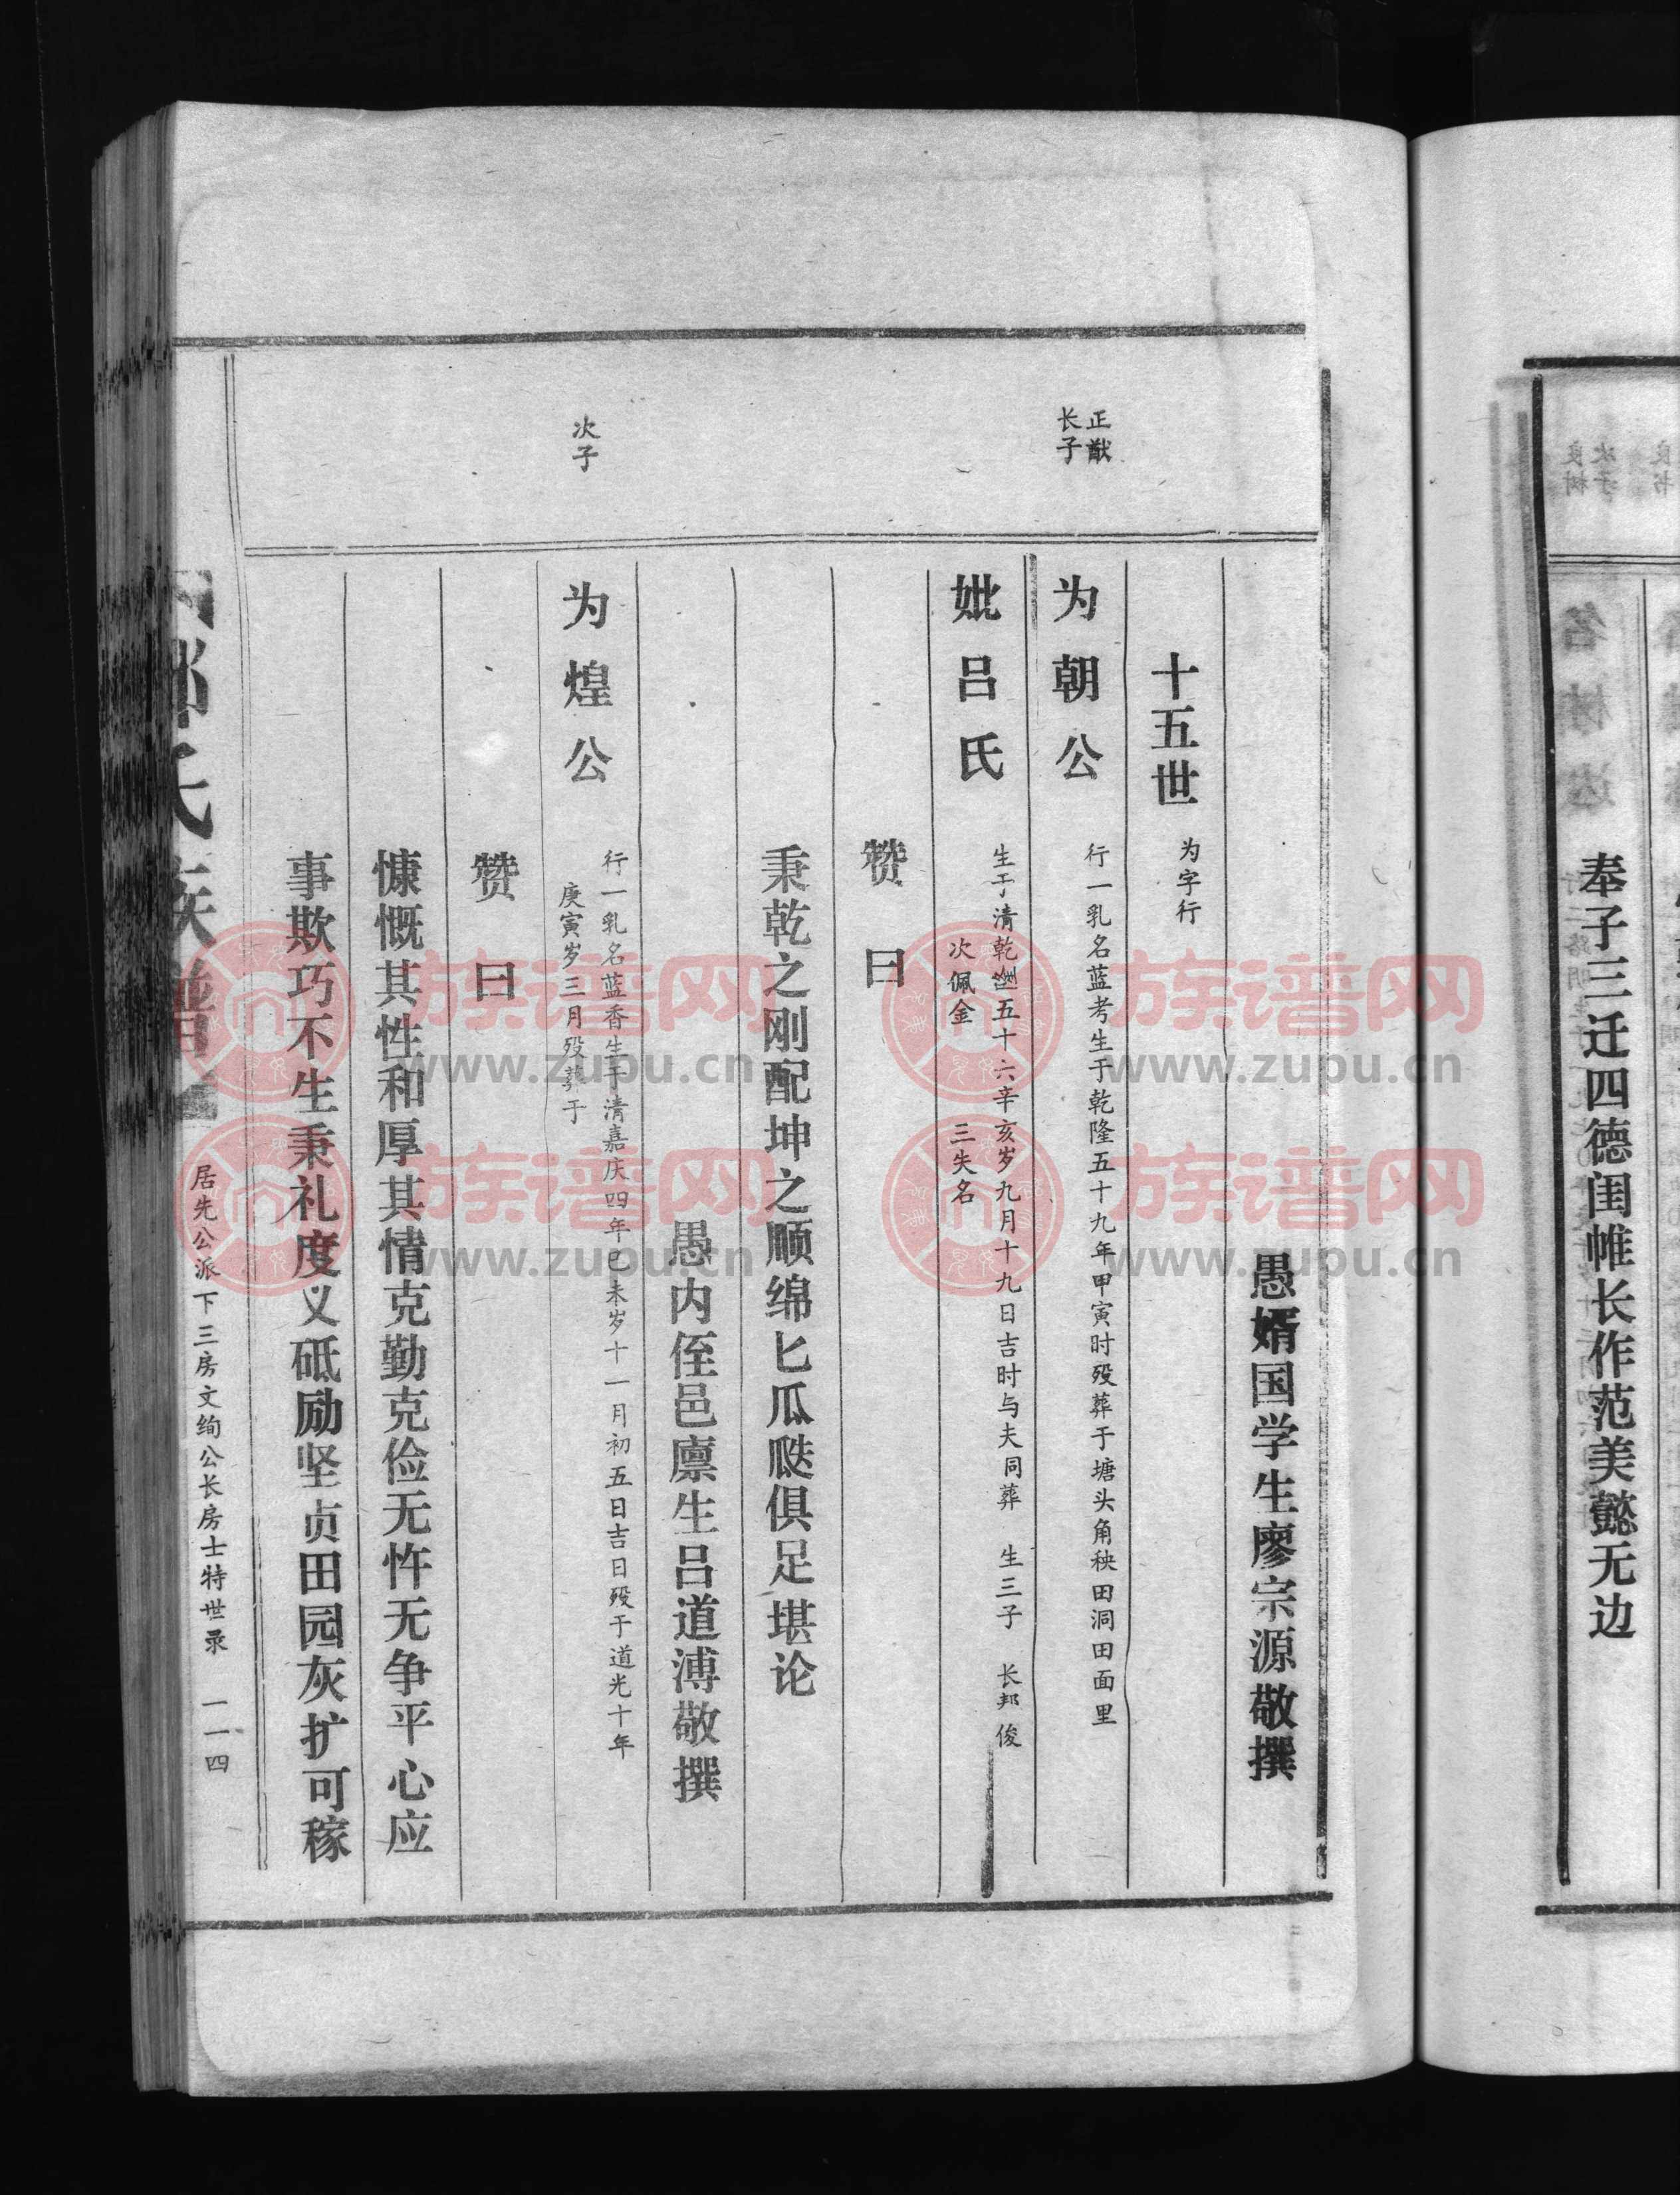 奉子三迁四德闺帷长作范美懿无边
愚婿国学生廖宗源敬撰
十五世 为字行
正猷
长子
为朝公 行一乳名蓝考生于乾隆五十九年甲寅时殁葬于塘头角秧田洞田面里
妣吕氏 生于清乾隆五十六辛亥岁九月十九日吉时与夫同葬 生三子 长邦俊
次佩金 三失名
赞曰
秉乾之刚配坤之顺绵匕瓜瓞俱足堪论
愚内侄邑廪生吕道溥敬撰
次子
为煌公 行一乳名蓝香生于清嘉庆四年已未岁十一月初五日吉日殁于道光十年
庚寅岁三月殁葬于
赞曰
慷慨其性和厚其情克勤克俭无忤无争平心应
事欺巧不生秉礼度义砥励坚贞田园灰扩可稼
氏族谱
居先公派下三房文绚公长房士特世录 一一四
族谱网
www.zupu.cn
族谱网
www.zupu.cn
族谱网
www.zupu.cn
族谱网
www.zupu.cn